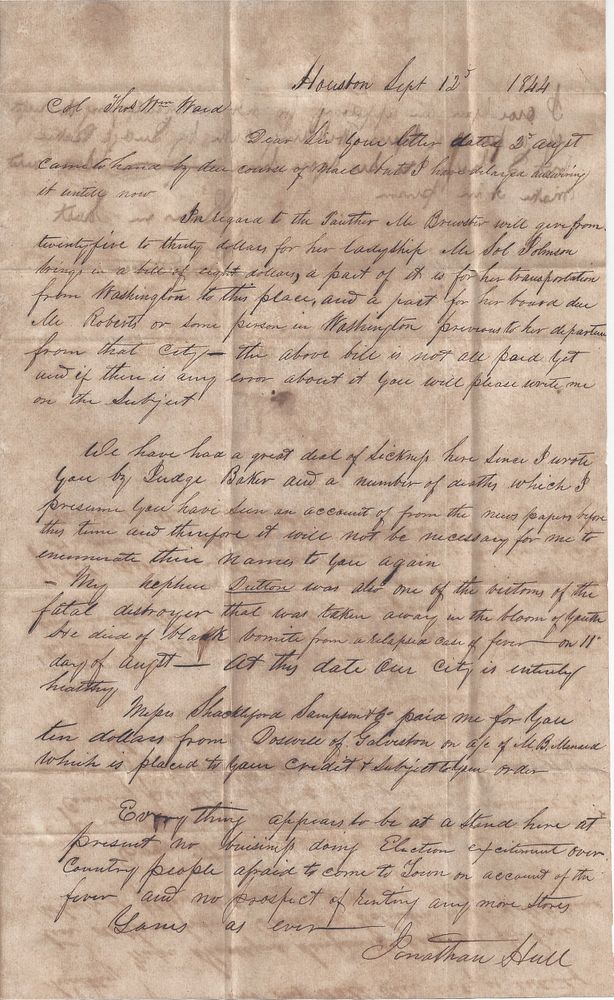 Houston Sept 12d 1844
Col Thos Wm Ward
Dear Sir Your letter dated 2d augt
came to hand by due course of Mail but I have delayed answering
it untill now
In regard to the Panther Mr Brewster will give from
twentyfive to thirty dollars for her ladyship Mr Sol Johnson
brings in a bill of eight dollars, a part of it is for her transportation
from Washington to this place, and a part for her board due
Mr Roberts or some person in Washington previous to her departure
from that city — the above bill is not all paid yet
and if there is any error about it you will please write me
on the Subject
We have had a great deal of Sickness here Since I wrote
you by Judge Baker and a number of deaths which I
presume you have seen an account of from the news papers before
this time and therefore it will not be necessary for me to
enumerate there names to you again
— My nephew Dutton was also one of the victoms of the
fatal destroyer that was taken away in the bloom of youth
he died of black vomite from a relapsed case of fever — on 11th
day of augt — At this date Our city is entirely
healthy
Messrs Shackleford Sampson & Co paid me for you
ten dollars from Doswell of Galveston on a/c of M. B. Menard
which is placed to your credit & Subject to your order
Everything appears to be at a stand here at
present no buisiness doing Election excitement over
Country people afraid to come to Town on account of the
fever and no prospect of renting any more Stores
Yours as ever
Jonathan Hull